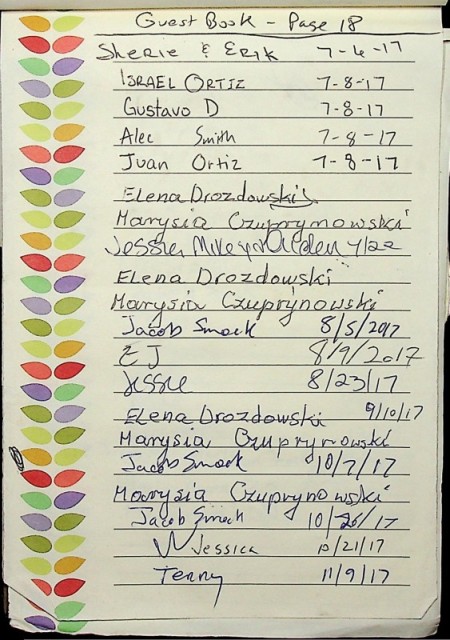 Guest Book - Page 18
Sherie & Erik 7-6-17
Israel Ortiz 7-8-17
Gustavo D 7-8-17
Alec Smith 7-8-17
Juan Ortiz 7-8-17
Elena Drozdowski
Marysia Czuprynowski
Jessie, Mike 7/22
Elena Drozdowski
Marysia Czuprynowski
Jacob Smock 8/5/2017
EJ 8/9/2017
Jessie 8/23/17
Elena Drozdowski 9/10/17
Marysia Czuprynowski
Jacob Smock 10/7/17
Marysia Czuprynowski
Jacob Smock 10/20/17
Jessica 10/21/17
Terry 11/9/17